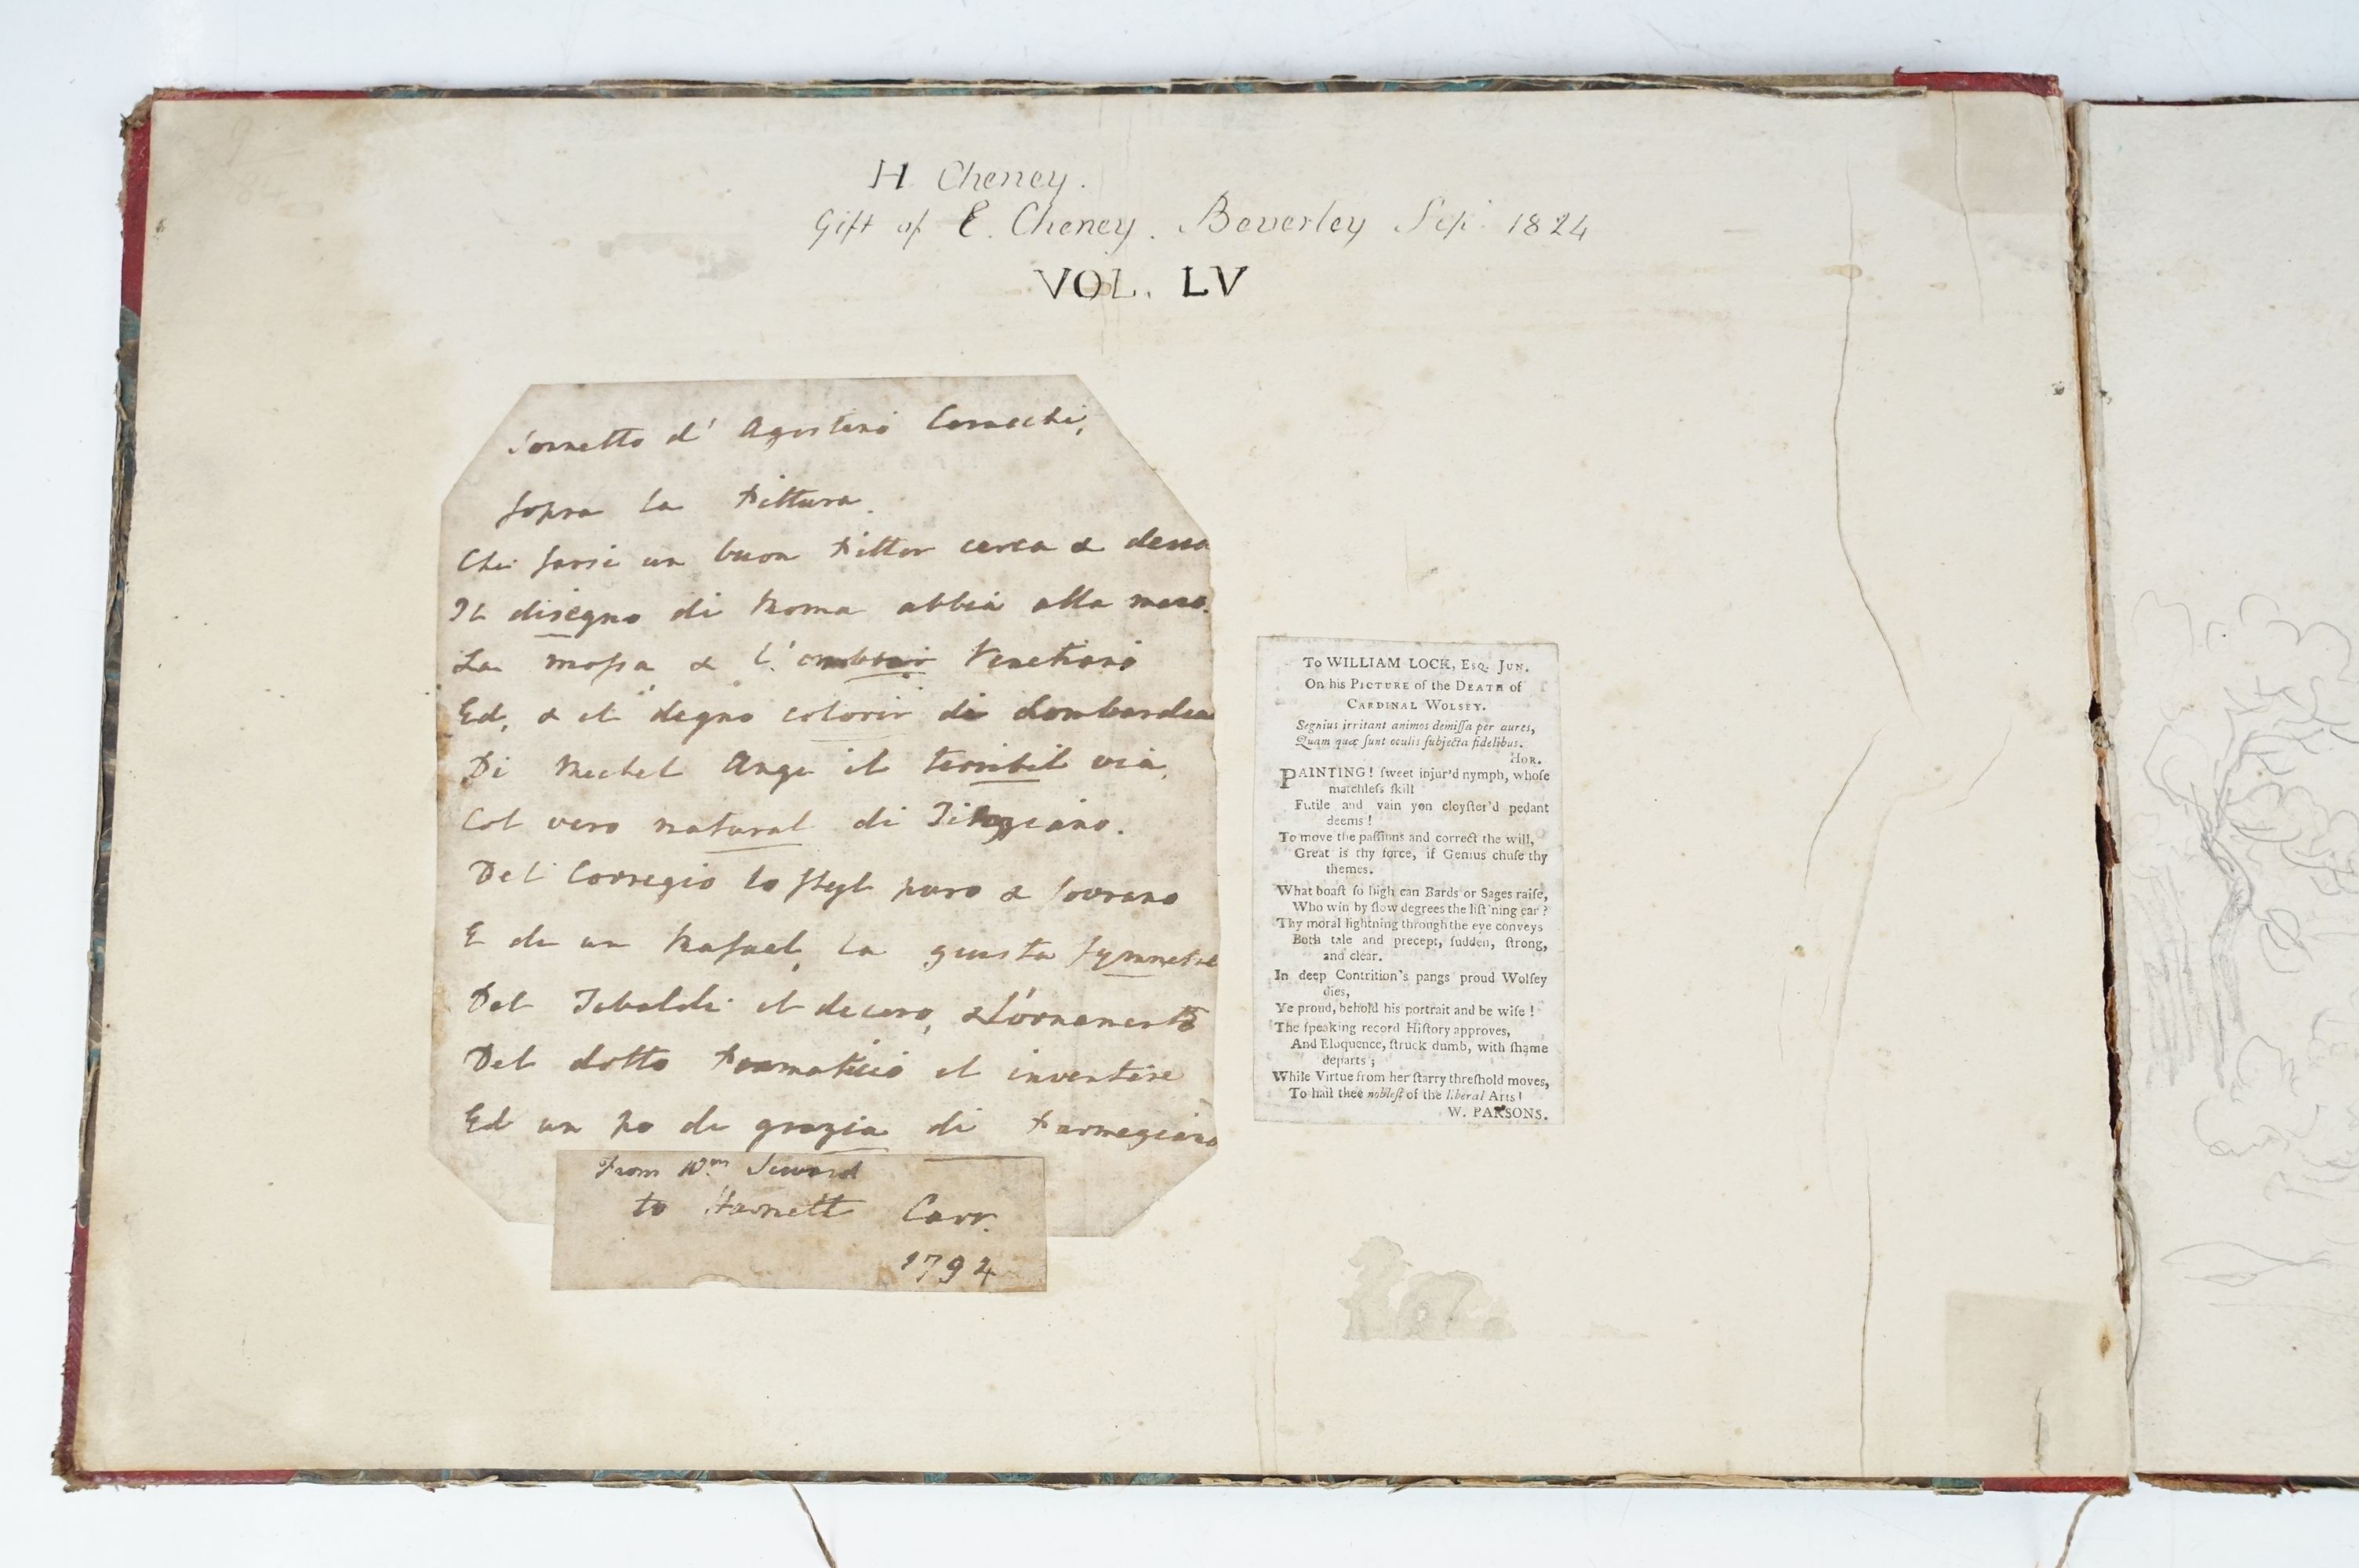 H Cheney.
Gift of E. Cheney. Beverley Sep. 1824
VOL. LV
Sonnetto d' Agostino Caracchi,
sopra la Pittura.
Chi farsi un buon Pittor cerca & desia
Il disegno di Roma abbia alla mano.
La mossa & l'ombrar Venetiano
Ed, & il degno colorir di Lombardia
Di Michel Ange il terribil via,
Col vero natural di Tiziano.
Del Corregio lo styl puro & sovrano
E di un Rafael, la giusta symmetrie
Del Tibaldi il decoro, & l'ornamento
Del dotto Primaticcio il inventare
Ed un po di grazia di Parmegiano
From Wm. Seward
to Harriett Carr.
1794
To WILLIAM LOCK, Esq. Jun.
On his Picture of the Death of
Cardinal Wolsey.
Segnius irritant animos demiſſa per aures,
Quam quæ ſunt oculis ſubjecta fidelibus.
Hor.
PAINTING! ſweet injur'd nymph, whoſe
matchleſs ſkill
Futile and vain yon cloyſter'd pedant
deems!
To move the paſſions and correct the will,
Great is thy force, if Genius chuſe thy
themes.
What boaſt ſo high can Bards or Sages raiſe,
Who win by ſlow degrees the liſt'ning ear?
Thy moral lightning through the eye conveys
Both tale and precept, ſudden, ſtrong,
and clear.
In deep Contrition's pangs proud Wolſey
dies,
Ye proud, behold his portrait and be wiſe!
The ſpeaking record Hiſtory approves,
And Eloquence, ſtruck dumb, with ſhame
departs;
While Virtue from her ſtarry threſhold moves,
To hail thee nobleſt of the liberal Arts!
W. PARSONS.